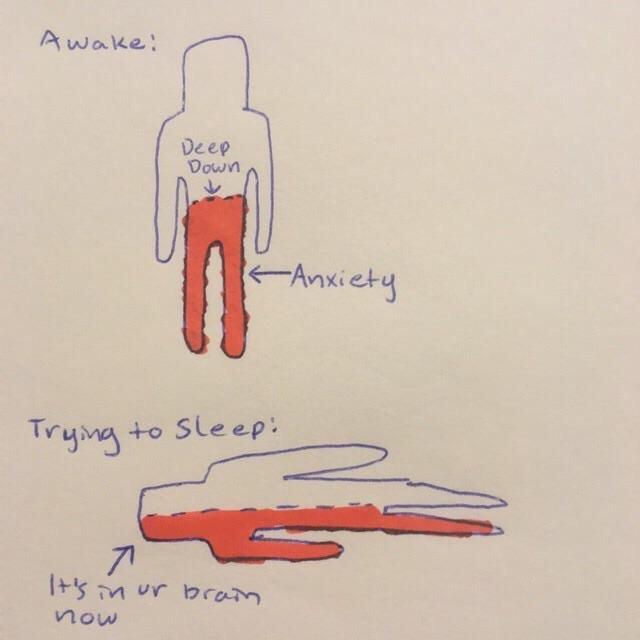 Awake:
Deep
Down
Anxiety
Trying to Sleep:
It's in ur brain
now